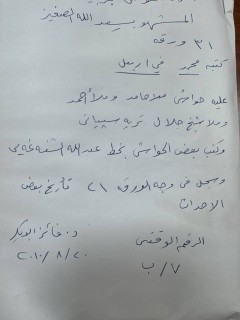 المشهور بسعد الله الصغير
٣١ ورقه
كتبه محرر في اربيل
عليه حواشي ملا حامد وملا أحمد
وملا شيخ جلال نربه سيبيانى
وكتب بعض الحواشي بخط عبدالله
وسجل في وجه الورق ٢١ تأريخ بعض
الاحداث
الرقم الوقفي د. فائز ابوبكر
٧/ب ٢٠١٠/٨/٢٠